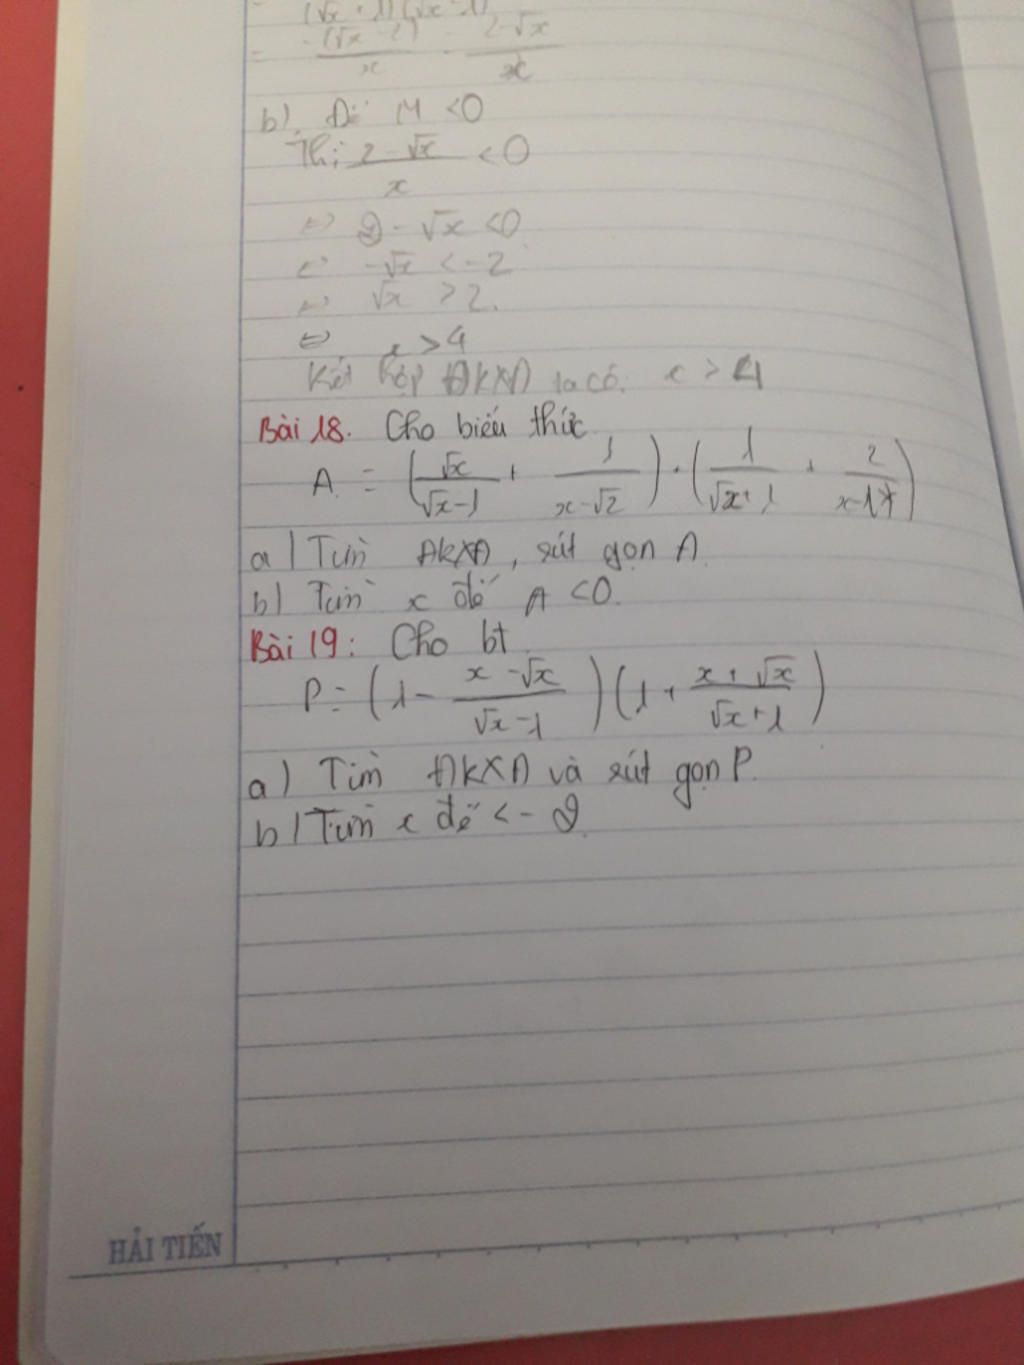 = (√x + 1)(√x - 1)
= -(√x - 2) / x = 2-√x / x
b) Để M < 0
Thì 2 - √x / x < 0
⇔ 2 - √x < 0
⇔ -√x < -2
⇔ √x > 2.
⇔ x > 4
Kết hợp ĐKXĐ ta có: x > 4
Bài 18. Cho biểu thức
A = (√x / √x-1 + 1 / x-√2) . (1 / √x+1 + 2 / x-1)
a) Tìm ĐKXĐ, rút gọn A.
b) Tìm x để A < 0.
Bài 19: Cho bt
P = (1 - x - √x / √x-1)(1 + x + √x / √x+1)
a) Tìm ĐKXĐ và rút gọn P.
b) Tìm x để < - 2
HẢI TIẾN